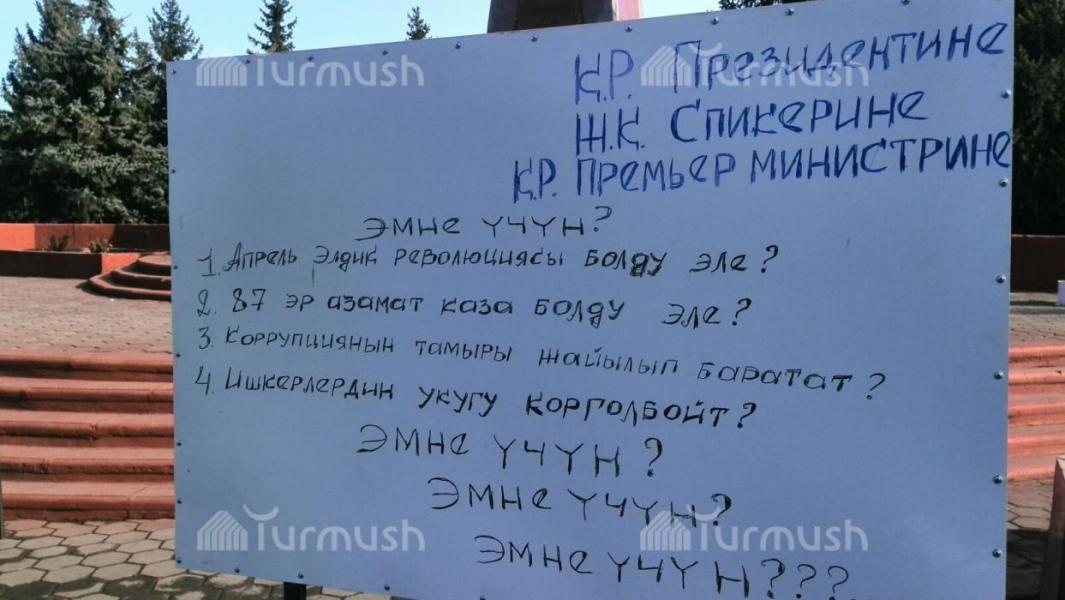 Turmush Turmush
К.Р. Президентине
Ж.К. Спикерине
К.Р. Премьер министрине
Эмне үчүн?
1. Апрель Элдик революциясы болду эле?
2. 87 эр азамат каза болду эле?
3. Коррупциянын тамыры жайылып баратат?
4. Ишкерлердин укугу корголбойт?
Эмне үчүн?
Эмне үчүн?
Turmush Turmush
Эмне үчүн???